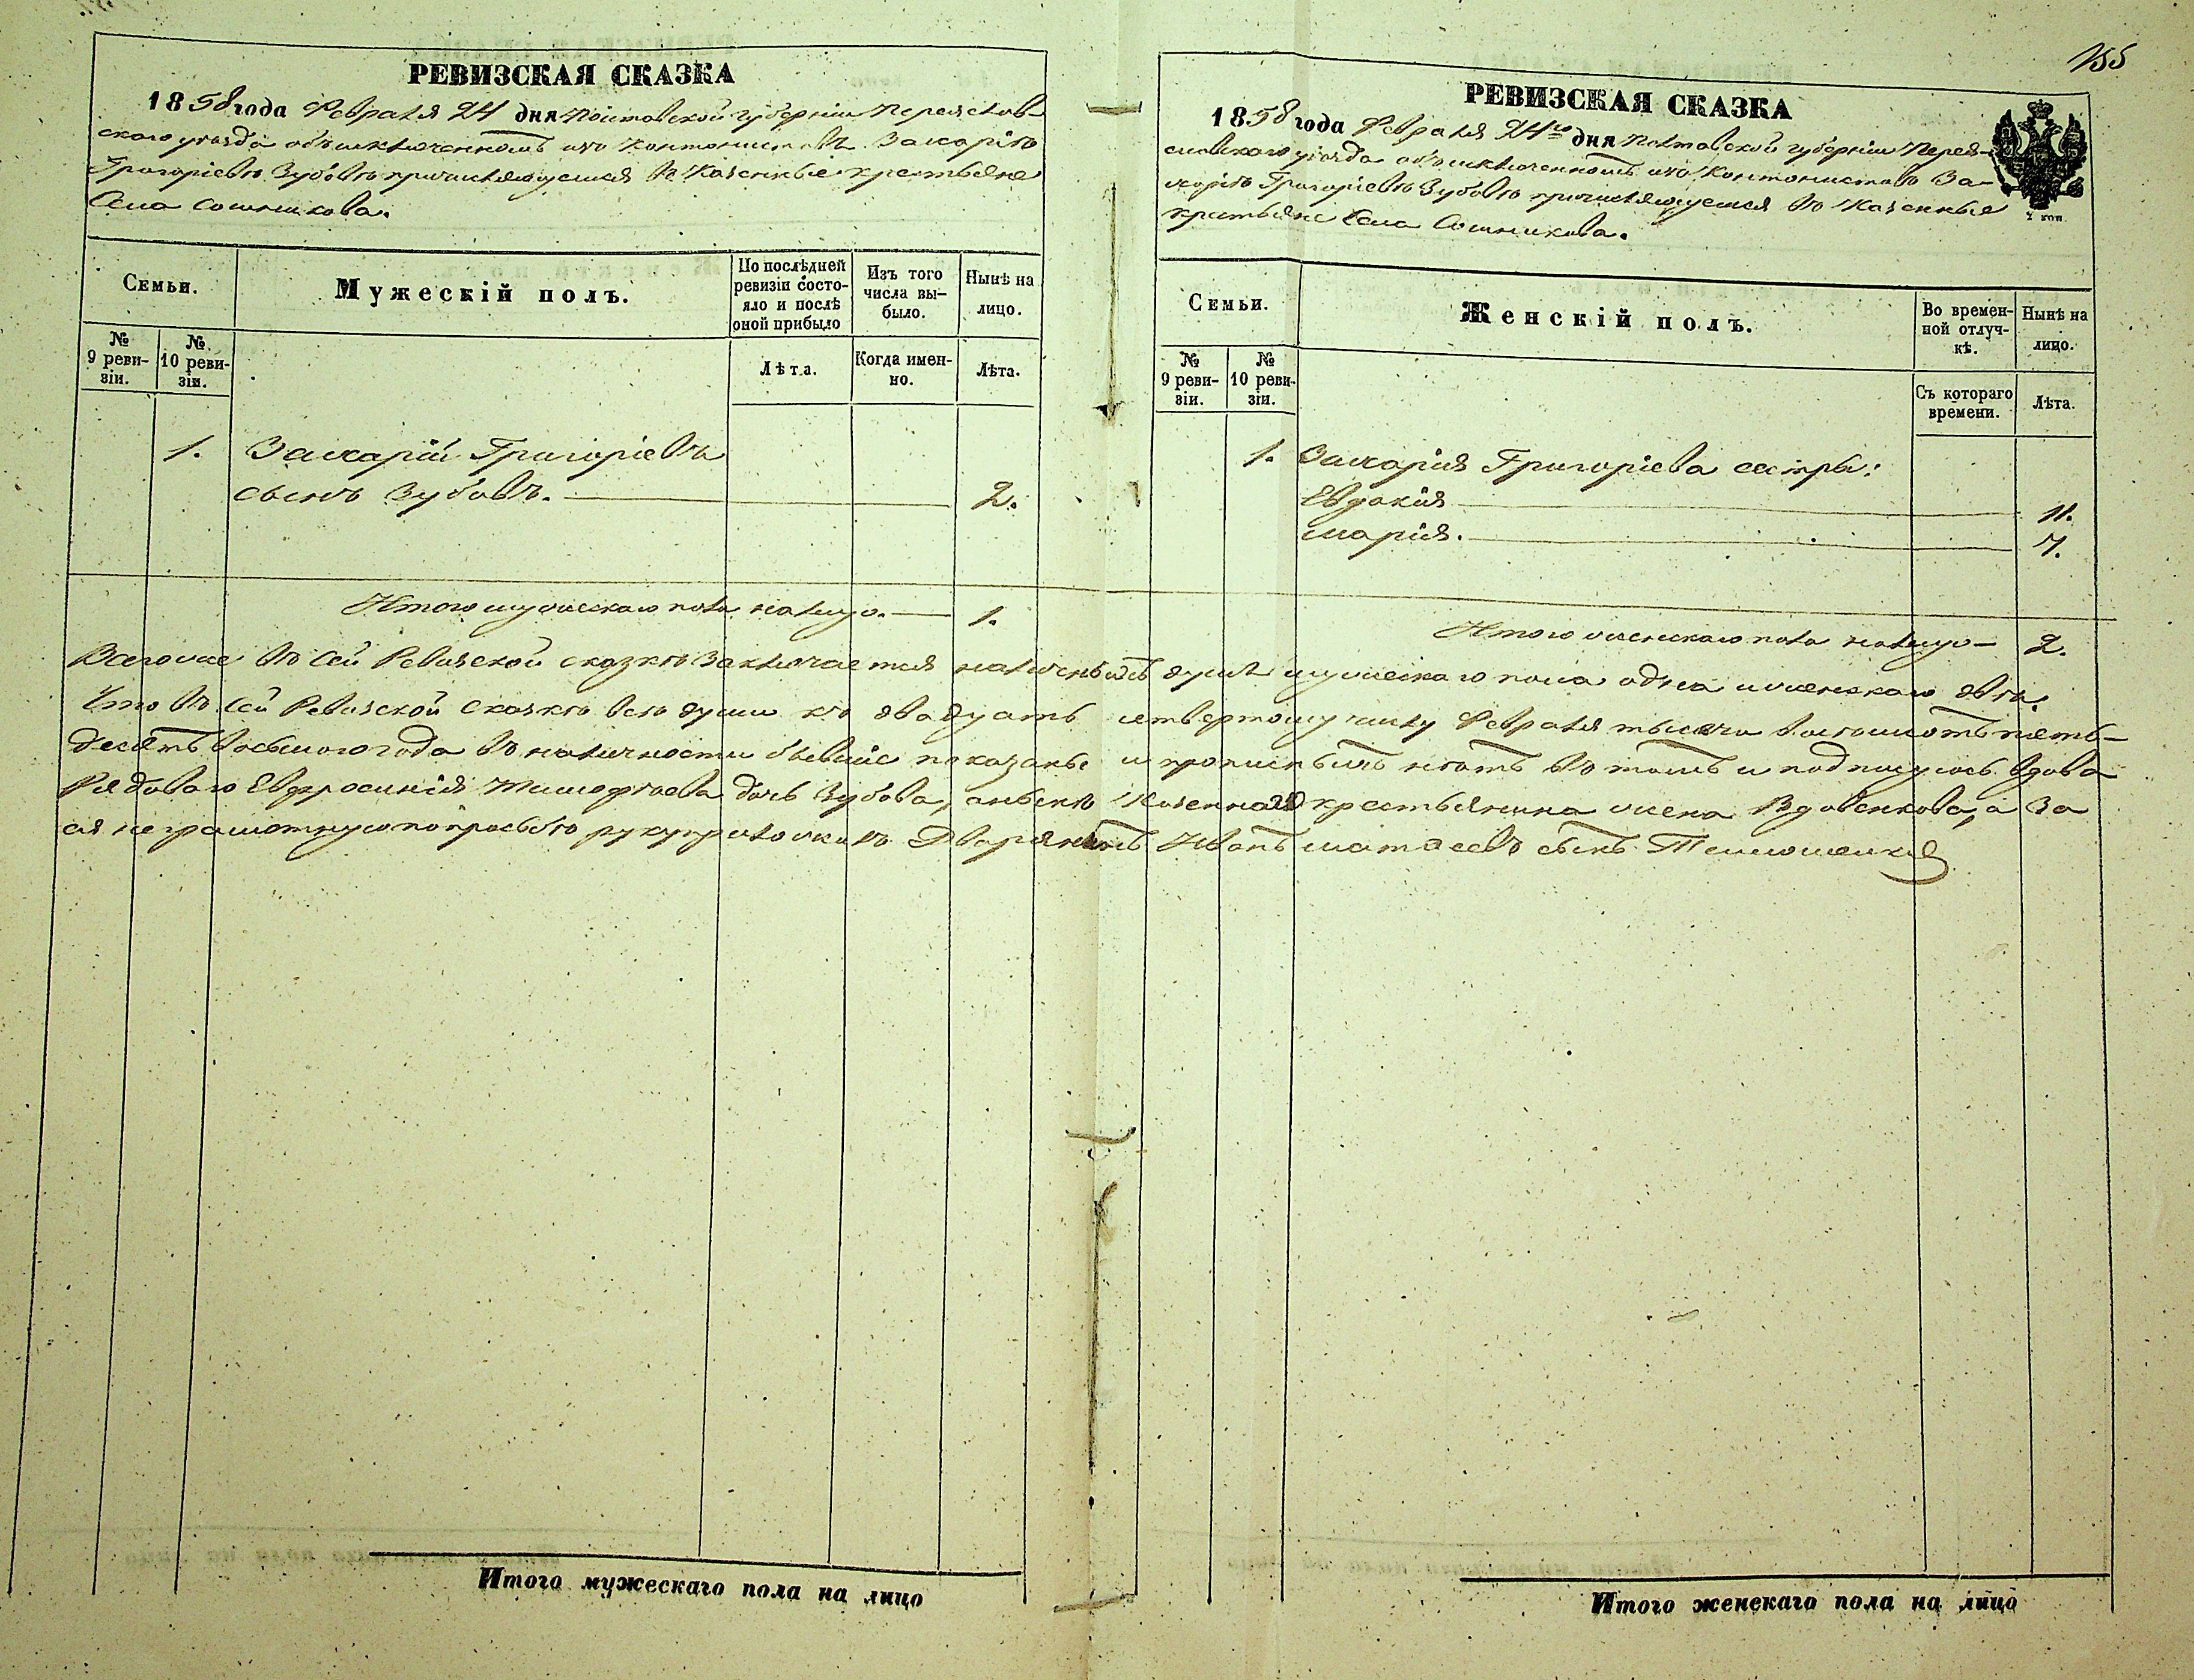 155
РЕВИЗСКАЯ СКАЗКА
1858 года Февраля 24 дня Полтавской губерніи Переяслав-
скаго уезда объ исключенномъ изъ Кантонистовъ Захаріѣ
Григоріевѣ Зубовѣ причисляющемся въ Казенные крестьяне
Села Сошникова.
Семьи.
Мужескій полъ.
По послѣдней ревизіи состо-
яло и послѣ оной прибыло
Изъ того числа вы-
было.
Нынѣ на лицо.
№ 9 реви-
зіи.
№ 10 реви-
зіи.
Лѣта.
Когда имен-
но.
Лѣта.
1. Захарій Григоріевъ
сынъ Зубовъ. 2.
Итого мужескаго пола налицо. 1.
РЕВИЗСКАЯ СКАЗКА
1858 года Февраля 24го дня Полтавской губерніи Перея-
славскаго уезда объ исключенномъ изъ Кантонистовъ За-
харіѣ Григоріевѣ Зубовѣ причисляющемся въ Казенные
крестьяне Села Сошникова.
2 коп.
Семьи.
Женскій полъ.
Во времен-
ной отлуч-
кѣ.
Нынѣ на лицо.
№ 9 реви-
зіи.
№ 10 реви-
зіи.
Съ котораго времени.
Лѣта.
1. Захарія Григоріева сестры:
Евдокія 11.
Марія. 7.
Итого женскаго пола налицо 2.
Всего же въ сей Ревизской сказкѣ Заключается наличныхъ душъ мужескаго пола одна и женскаго двѣ.
Что въ сей Ревизской Сказкѣ все души къ двадцать четвертому числу Февраля тысяча восемьсотъ пять-
десятъ восьмого года въ наличности бывшіе показаны и прописныхъ нѣтъ въ томъ и подписуюсь вдова
Рядоваго Евфросинія Тимофѣева дочь Зубова, а нынѣ Казеннаго крестьянина жена Вдовенкова, а за
ея неграмотную по просьбѣ руку приложилъ Дворянинъ Иванъ Матвеевъ сынъ
Итого мужескаго пола на лицо
Итого женскаго пола на лицо